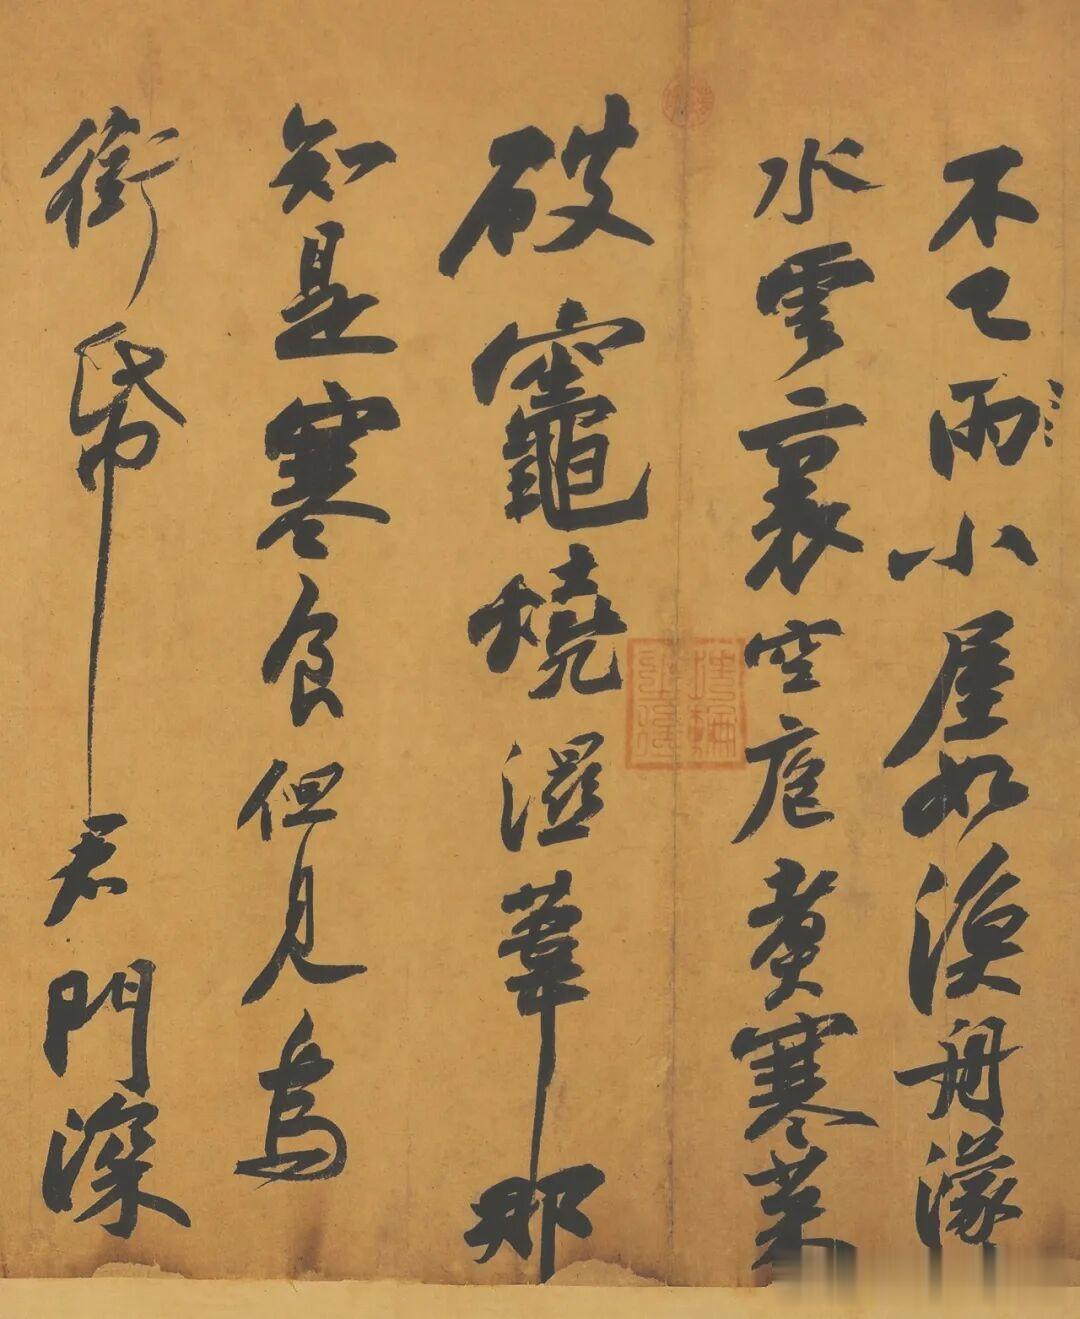 不已雨小屋如漁舟濛
水雲裏空庖煑寒菜
破竈燒濕葦那
知是寒食但見烏
銜帋君門深